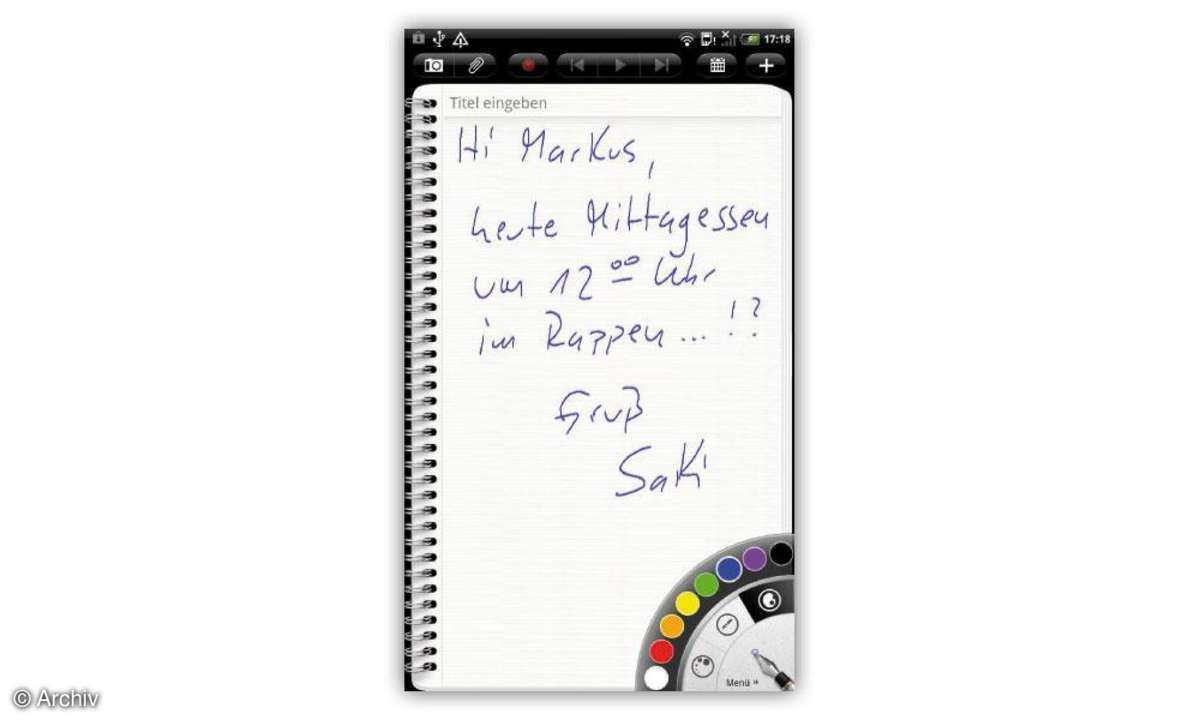 17:18
Titel eingeben
Hi Markus,
heute Mittagessen
um 12 00 Uhr
im Rappen...!?
Gruß
Saki
Menü »
© Archiv